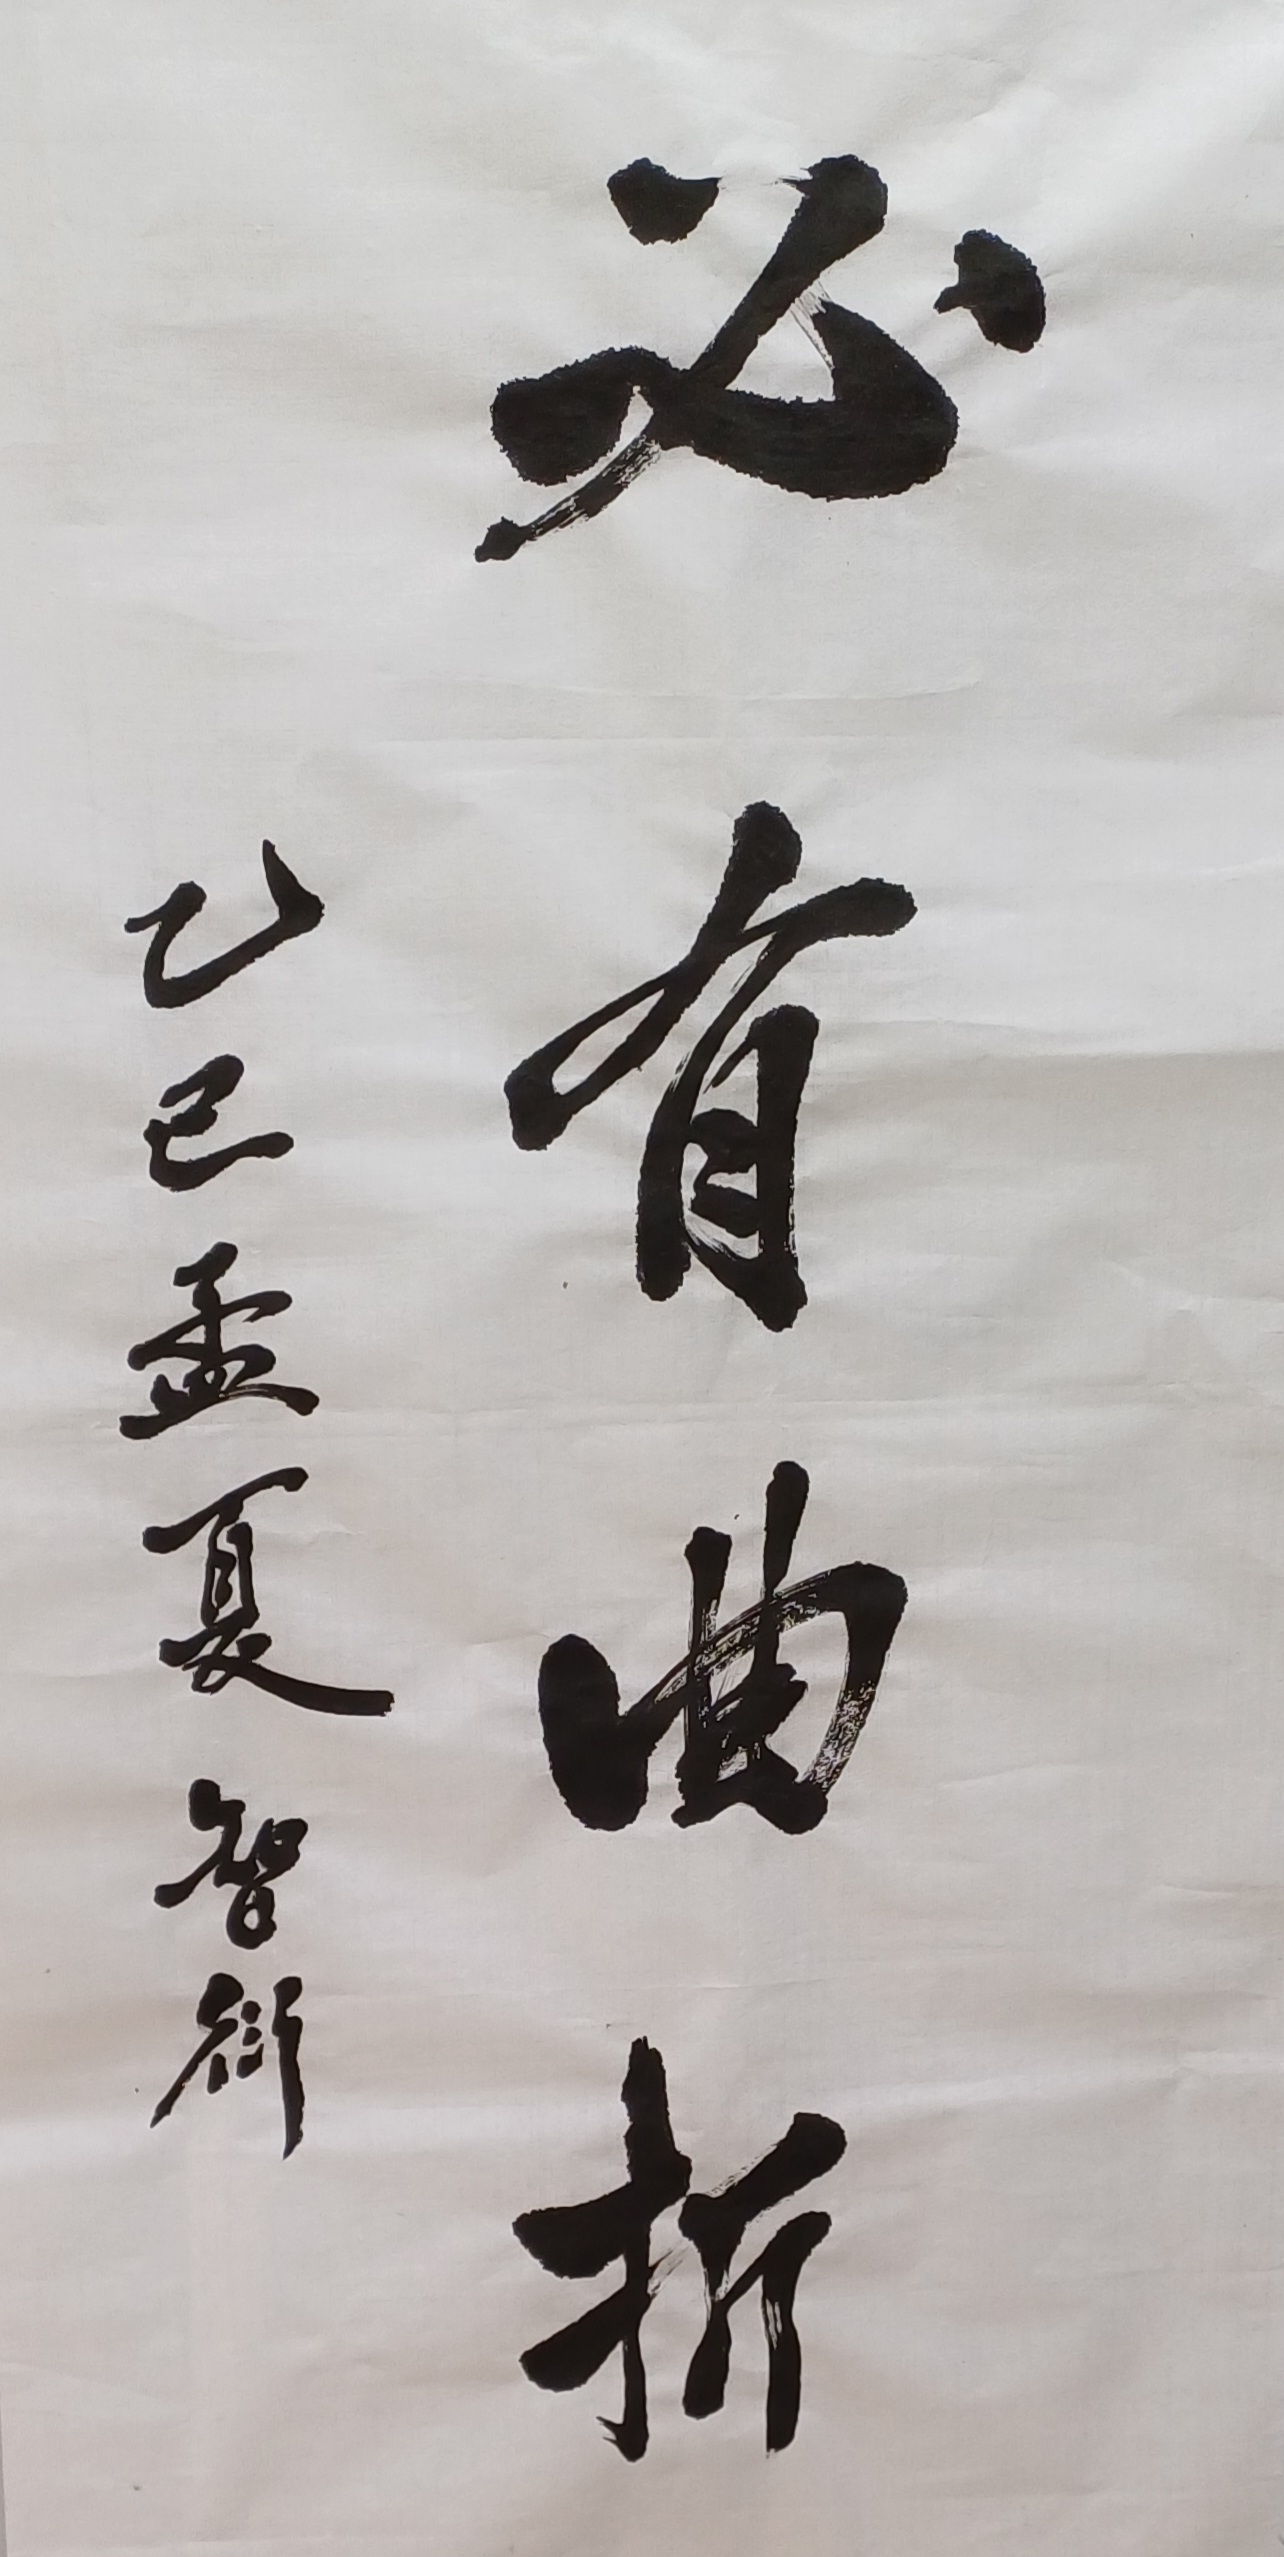 必有曲折
乙巳孟夏智衍